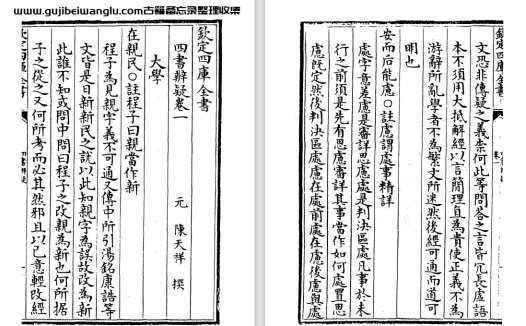 www.gujibeiwanglu.com古籍备忘录整理收集
欽定四庫全書
四書辨疑卷一
元 陳天祥 撰
大學
在親民○註程子曰親當作新
程子為見親字義不可通又傳中所引湯銘康誥等
文皆是日新新民之說以此知親字為誤故改為新
此誰不知或問中問曰程子之改親為新也何所據
子之從之又何所考而必其然邪且以己意輕改經
文恐非傳疑之義柰何此等問答之言皆冗長虛語
本不須用大抵解經以言簡理直為貴使正義不為
游辭所亂學者不為繁文所迷然後經可通而道可
明也
安而后能慮○註慮謂處事精詳
慮字意差慮是審詳思慮處是判決區處凡事於未
行之前須是先有思慮審詳其事當作如何處置思
慮既定然後判決區處慮在處前處在慮後慮與處